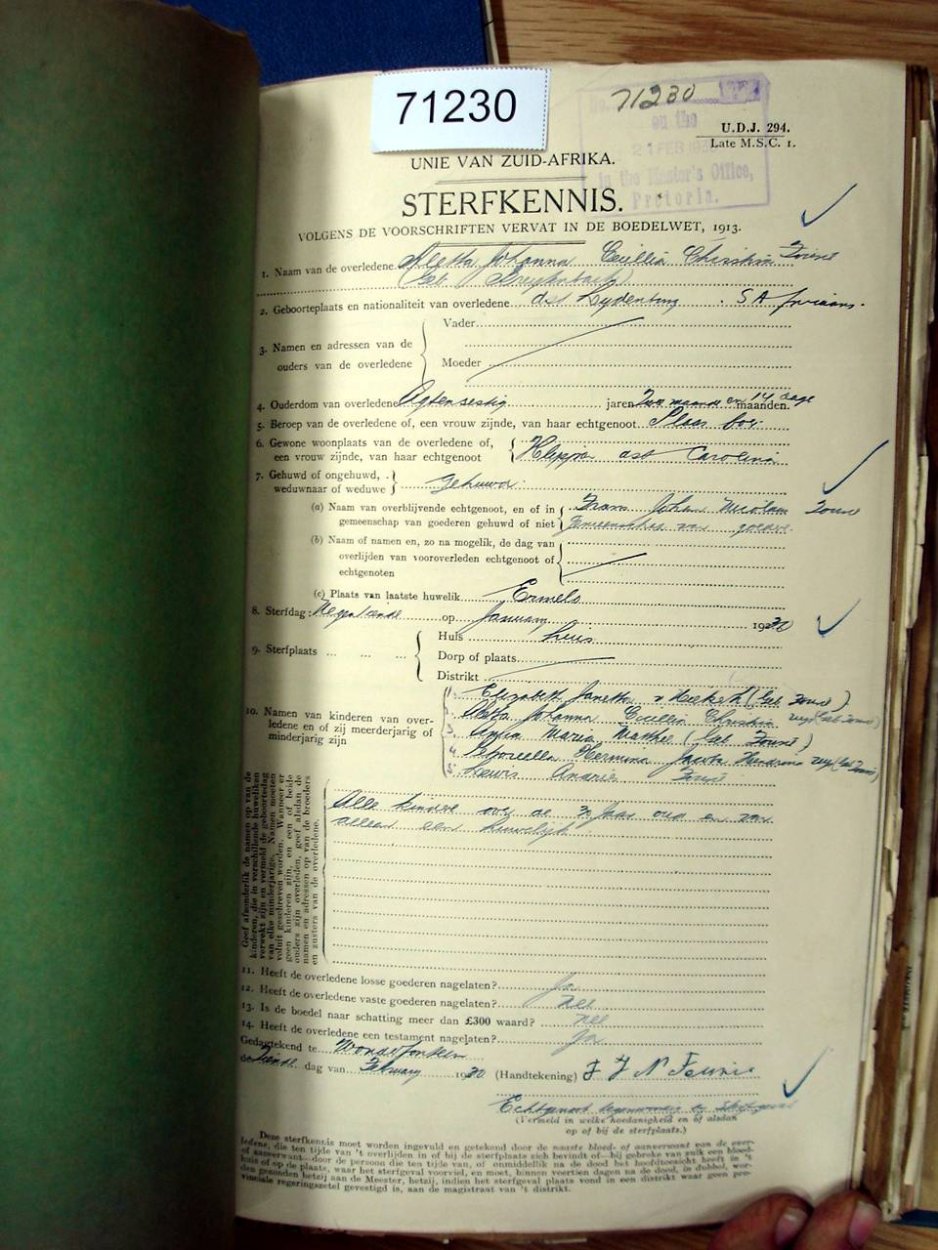 71230
71230
U.D.J. 294.
Late M.S.C. 1.
on the
FEB
in the Master's Office,
Pretoria.
UNIE VAN ZUID-AFRIKA.
STERFKENNIS.
VOLGENS DE VOORSCHRIFTEN VERVAT IN DE BOEDELWET, 1913.
1. Naam van de overledene Aletta Johanna Cecillia Fourie
2. Geboorteplaats en nationaliteit van overledene dist Lydenburg. S A
3. Namen en adressen van de ouders van de overledene
Vader
Moeder
4. Ouderdom van overledene Agtensestig jaren Twe maande en 14 dage maanden.
5. Beroep van de overledene of, een vrouw zijnde, van haar echtgenoot Plaas boer
6. Gewone woonplaats van de overledene of, een vrouw zijnde, van haar echtgenoot dist Carolina
7. Gehuwd of ongehuwd, weduwnaar of weduwe Gehuwd
(a) Naam van overblijvende echtgenoot, en of in gemeenschap van goederen gehuwd of niet Frans Johan Nicolaas Fourie
van goedere
(b) Naam of namen en, zo na mogelik, de dag van overlijden van vooroverleden echtgenoot of echtgenoten
(c) Plaats van laatste huwelik Ermelo
8. Sterfdag: op Januarie 1930
9. Sterfplaats
Huis huis
Dorp of plaats
Distrikt
10. Namen van kinderen van overledene en of zij meerderjarig of minderjarig zijn
1. Elizabeth (Geb Fourie)
2. Aletta Johanna Cecillia (Geb Fourie)
3. Maria (Geb Fourie)
4. Petronella Hermina Jacoba (Geb Fourie)
5. Louis Andries Fourie
Geef afzonderlik de namen op van de kinderen, die in verschillende huweliken verwekt zijn en vermeld de geboortedag van elke minderjarige. Namen moeten voluit geschreven worden. Wanneer er geen kinderen zijn, en een of beide ouders zijn overleden, geef alsdan de namen en adressen op van de broeders en zusters van de overledene.
Alle kindere over de jaar oud en van
alleen een huwelijk
11. Heeft de overledene losse goederen nagelaten? Ja
12. Heeft de overledene vaste goederen nagelaten? nee
13. Is de boedel naar schatting meer dan £300 waard? nee
14. Heeft de overledene een testament nagelaten? Ja
Gedagtekend te Wonderfontein
de dag van February 1930 (Handtekening) F J N Fourie
Echtgenoot
(Vermeld in welke hoedanigheid en of alsdan
op of bij de sterfplaats.)
Deze sterfkennis moet worden ingevuld en getekend door de naaste bloed- of aanverwant van de overledene, die ten tijde van 't overlijden in of bij de sterfplaats zich bevindt of—bij gebreke van zulk een bloed- of aanverwant—door de persoon die ten tijde van, of onmiddellik na de dood het hoofdtoezicht heeft in 't huis of op de plaats, waar het sterfgeval voorviel, en moet, binnen veertien dagen na de dood, in dubbel, worden gezonden hetzij aan de Meester, hetzij, indien het sterfgeval plaats vond in een distrikt waar geen provinciale regeringszetel gevestigd is, aan de magistraat van 't distrikt.